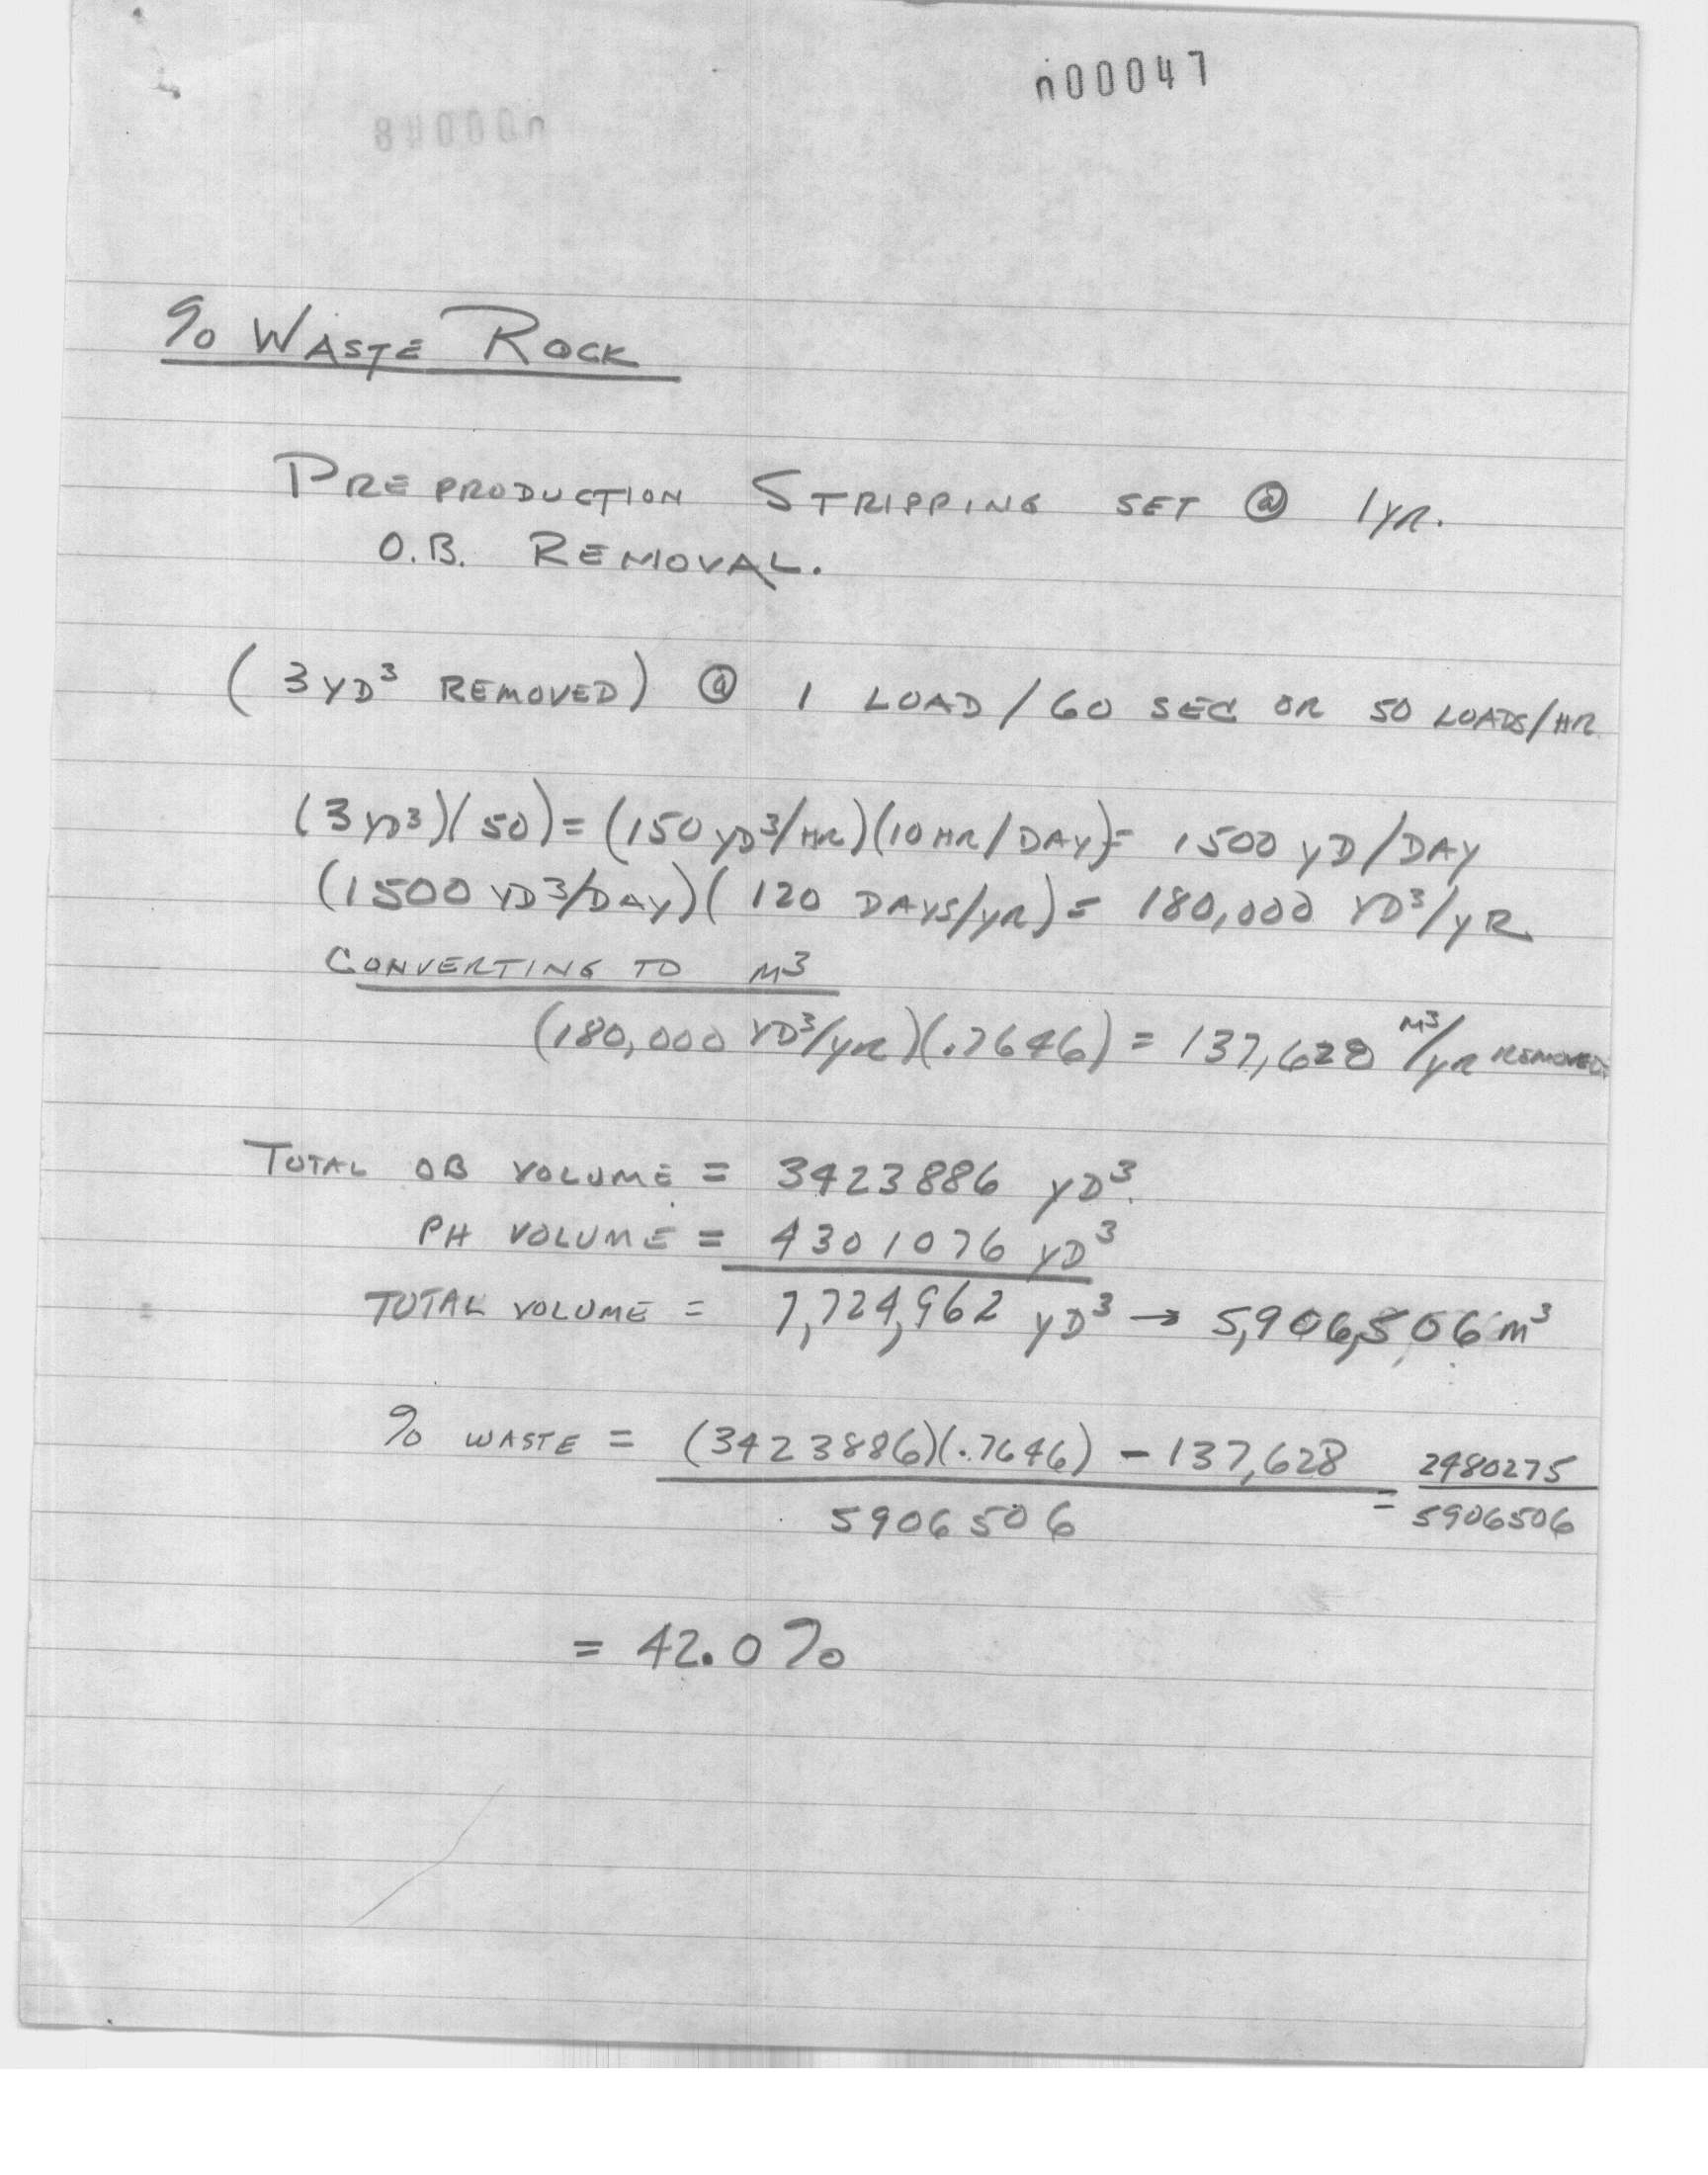 n00047
% WASTE ROCK
PREPRODUCTION STRIPPING SET @ 1YR.
O.B. REMOVAL.
(3 YD³ REMOVED) @ 1 LOAD/60 SEC OR 50 LOADS/HR
(3 YD³)(50) = (150 YD³/HR)(10 HR/DAY) = 1500 YD/DAY
(1500 YD³/DAY)(120 DAYS/YR) = 180,000 YD³/YR.
CONVERTING TO M³
(180,000 YD³/YR)(.7646) = 137,628 M³/YR REMOVED.
TOTAL OB VOLUME = 3423886 YD³.
PH VOLUME = 4301076 YD³
TOTAL VOLUME = 7,724,962 YD³ → 5,906,506 m³
% WASTE = (3423886)(.7646) - 137,628 = 2480275
5906506 5906506
= 42.0%